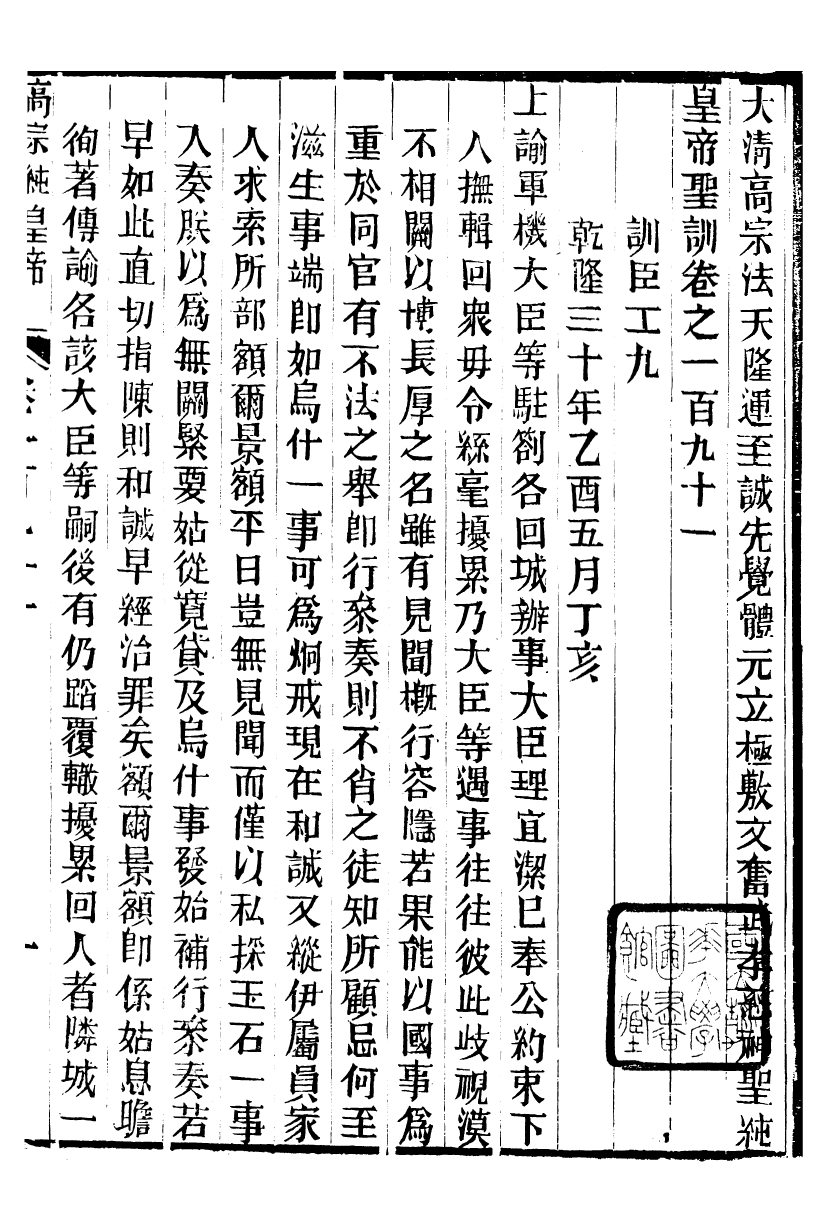 大清高宗法天隆運至誠先覺體元立極敷文奮武孝慈神聖純
皇帝聖訓卷之一百九十一
訓臣工九
乾隆三十年乙酉五月丁亥
上諭軍機大臣等駐劄各回城辦事大臣理宜潔已奉公約束下
人撫輯回衆毋令絲毫擾累乃大臣等遇事往往彼此歧視漠
不相關以博長厚之名雖有見聞槪行容隱若果能以國事爲
重於同官有不法之舉卽行叅奏則不肖之徒知所顧忌何至
滋生事端卽如烏什一事可爲炯戒現在和誠又縱伊屬員家
人求索所部額爾景額平日豈無見聞而僅以私採玉石一事
入奏朕以爲無關緊要姑從寬貸及烏什事發始補行叅奏若
早如此直切指陳則和誠早經治罪矣額爾景額卽係姑息瞻
徇著傳諭各該大臣等嗣後有仍蹈覆轍擾累回人者隣城一
高宗純皇帝
卷一百九十一
一
圖書
館藏